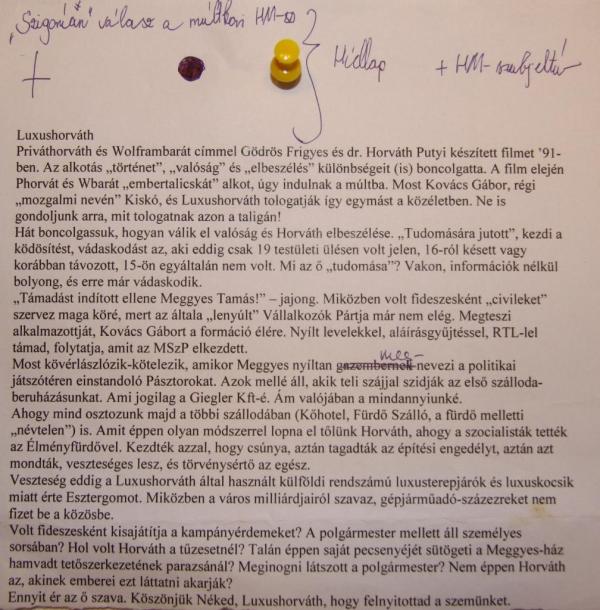 „Szigorúan" válasz a múltkori HM-
Hídlap + HM-
Luxushorváth
Priváthorváth és Wolframbarát címmel Gödrös Frigyes és dr. Horváth Putyi készített filmet '91-
ben. Az alkotás „történet", „valóság" és „elbeszélés" különbségeit (is) boncolgatta. A film elején
Phorvát és Wbarát „embertalicskát" alkot, úgy indulnak a múltba. Most Kovács Gábor, régi
„mozgalmi nevén" Kiskó, és Luxushorváth tologatják így egymást a közéletben. Ne is
gondoljunk arra, mit tologatnak azon a taligán!
Hát boncolgassuk, hogyan válik el valóság és Horváth elbeszélése. „Tudomására jutott", kezdi a
ködösítést, vádaskodást az, aki eddig csak 19 testületi ülésen volt jelen, 16-ról késett vagy
korábban távozott, 15-ön egyáltalán nem volt. Mi az ő „tudomása"? Vakon, információk nélkül
bolyong, és erre már vádaskodik.
„Támadást indított ellene Meggyes Tamás!" – jajong. Miközben volt fideszesként „civileket"
szervez maga köré, mert az általa „lenyúlt" Vállalkozók Pártja már nem elég. Megteszi
alkalmazottját, Kovács Gábort a formáció élére. Nyílt levelekkel, aláírásgyűjtéssel, RTL-lel
támad, folytatja, amit az MSzP elkezdett.
Most kövérlászlózik-kötelezik, amikor Meggyes nyíltan gazembernek meg- nevezi a politikai
játszótéren einstandoló Pásztorokat. Azok mellé áll, akik teli szájjal szidják az első szálloda-
beruházásunkat. Ami jogilag a Giegler Kft-é. Ám valójában a mindannyiunké.
Ahogy mind osztozunk majd a többi szállodában (Kőhotel, Fürdő Szálló, a fürdő melletti
„névtelen") is. Amit éppen olyan módszerrel lopna el tőlünk Horváth, ahogy a szocialisták tették
az Élményfürdővel. Kezdték azzal, hogy csúnya, aztán tagadták az építési engedélyt, aztán azt
mondták, veszteséges lesz, és törvénysértő az egész.
Veszteség eddig a Luxushorváth által használt külföldi rendszámú luxusterepjárók és luxuskocsik
miatt érte Esztergomot. Miközben a város milliárdjairól szavaz, gépjárműadó-százezreket nem
fizet be a közösbe.
Volt fideszesként kisajátítja a kampányérdemeket? A polgármester mellett áll személyes
sorsában? Hol volt Horváth a tűzesetnél? Talán éppen saját pecsenyéjét sütögeti a Meggyes-ház
hamvadt tetőszerkezetének parazsánál? Meginogni látszott a polgármester? Nem éppen Horváth
az, akinek emberei ezt láttatni akarják?
Ennyit ér az ő szava. Köszönjük Néked, Luxushorváth, hogy felnyitottad a szemünket.